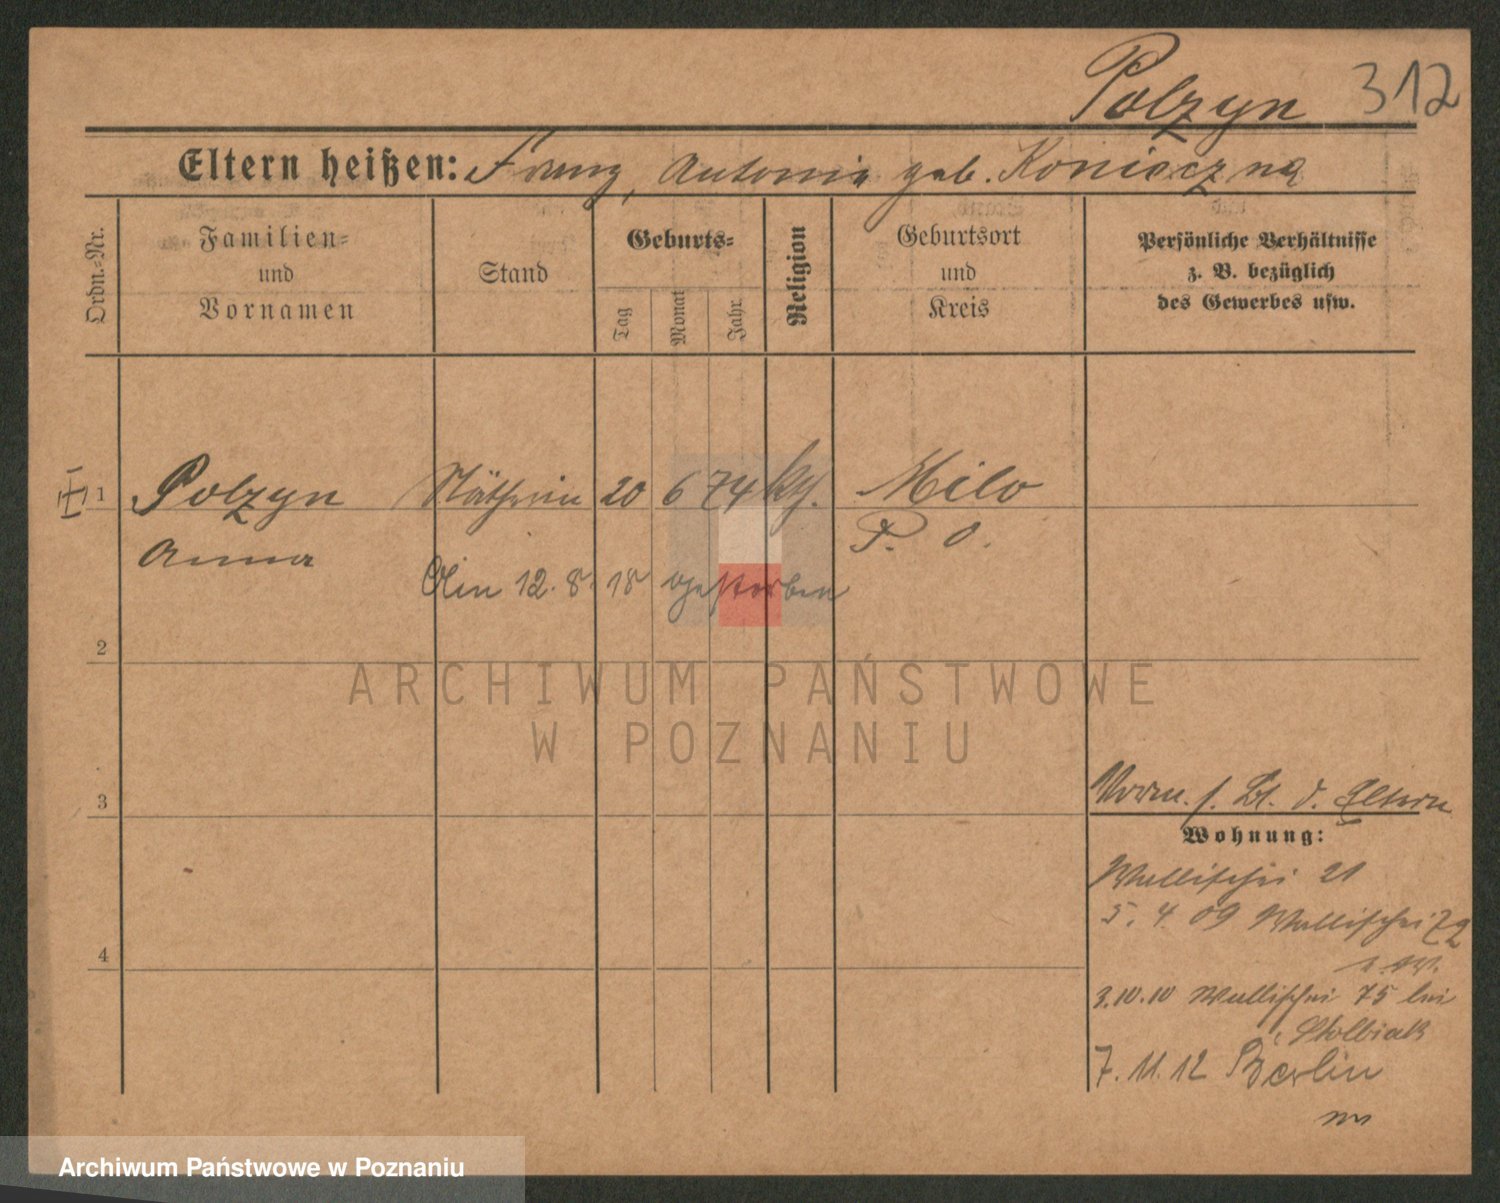 Polzyn 312
Eltern heißen: Franz, Antonie geb. Konieczna
Ordn.-Nr.
Familien-
und
Vornamen
Stand
Geburts-
Tag
Monat
Jahr.
Religion
Geburtsort
und
Kreis
Persönliche Verhältnisse
z. B. bezüglich
des Gewerbes usw.
1 Polzyn Näherin 20 6 74 kth. Milo
Anna P. O.
Am 12. 8. 18 gestorben
2
ARCHIWUM PAŃSTWOWE
W POZNANIU
3
Vorm. s. Bl. d. Eltern
Wohnung:
Wallischei 21
5. 4. 09 Wallischei 72
3.10.10 Wallischei 75 bei
Stolbiak
4
7. 11. 12 Berlin
Archiwum Państwowe w Poznaniu